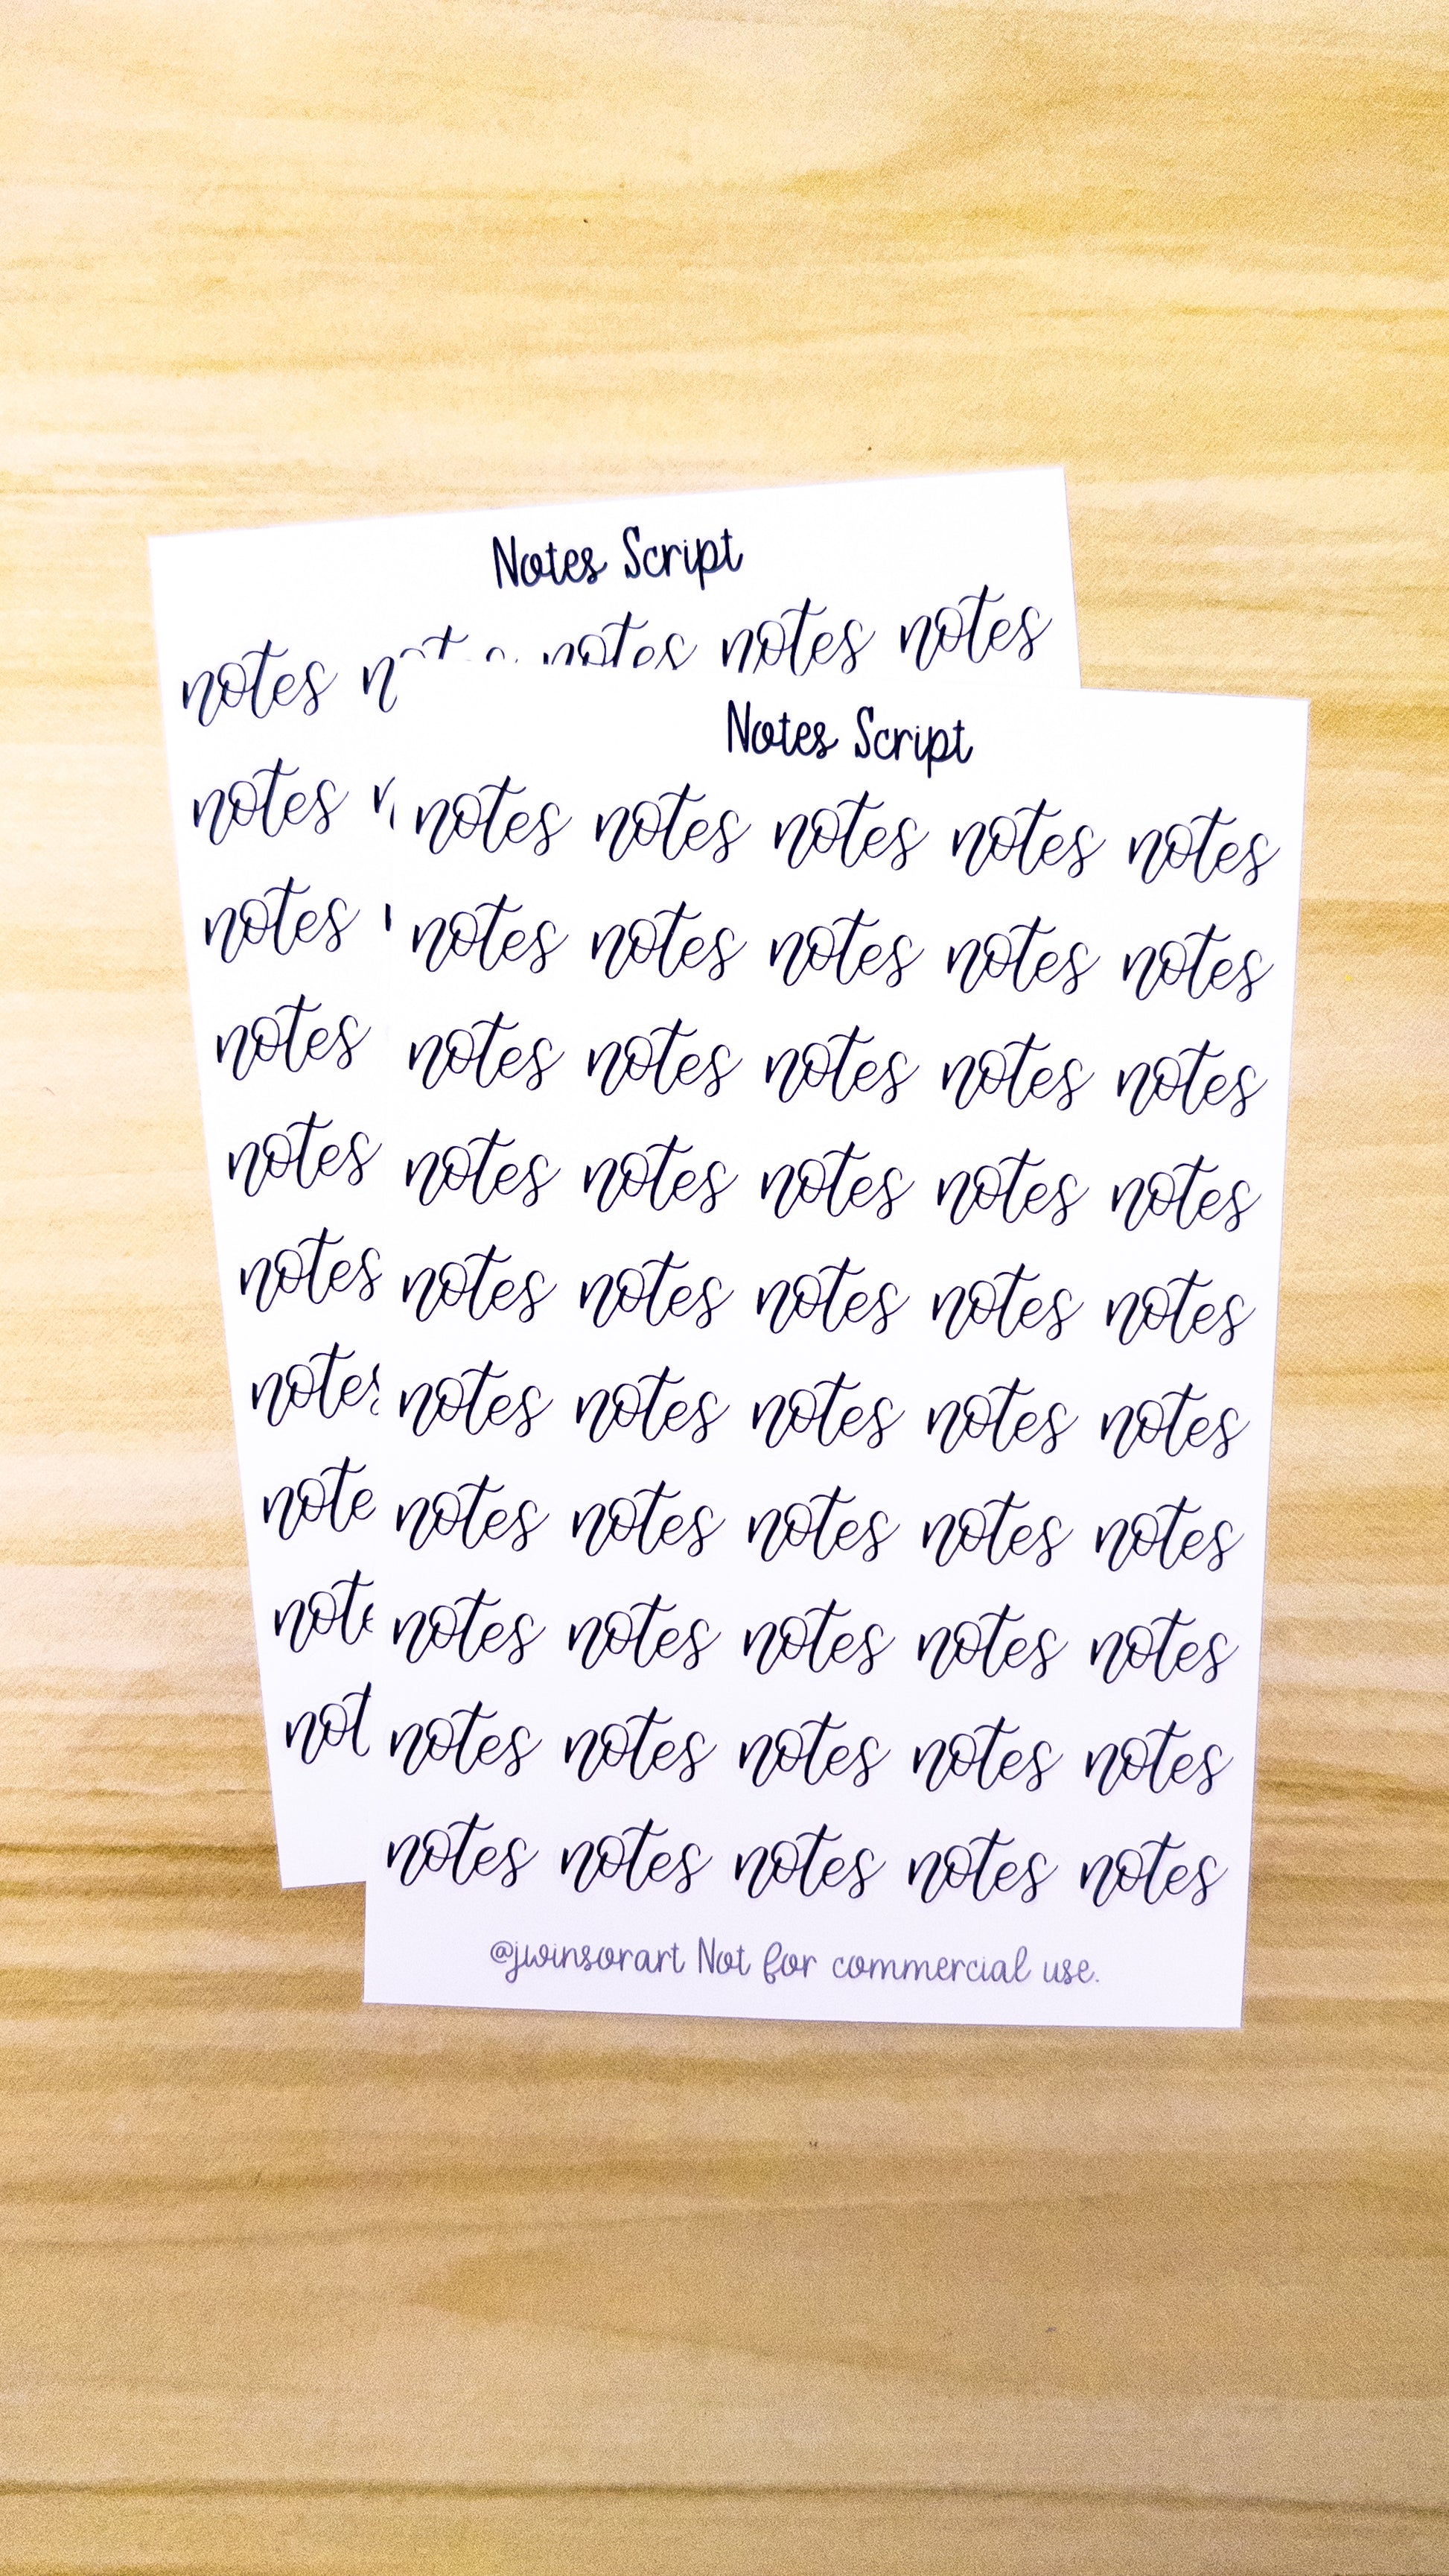 Notes Script
notes notes notes notes
notes
notes
notes
notes
notes
notes
note
not
not
Notes Script
notes notes notes notes notes
notes notes notes notes notes
notes notes notes notes notes
notes notes notes notes notes
notes notes notes notes notes
notes notes notes notes notes
notes notes notes notes notes
notes notes notes notes notes
notes notes notes notes notes
notes notes notes notes notes
@jwinsorart Not for commercial use.